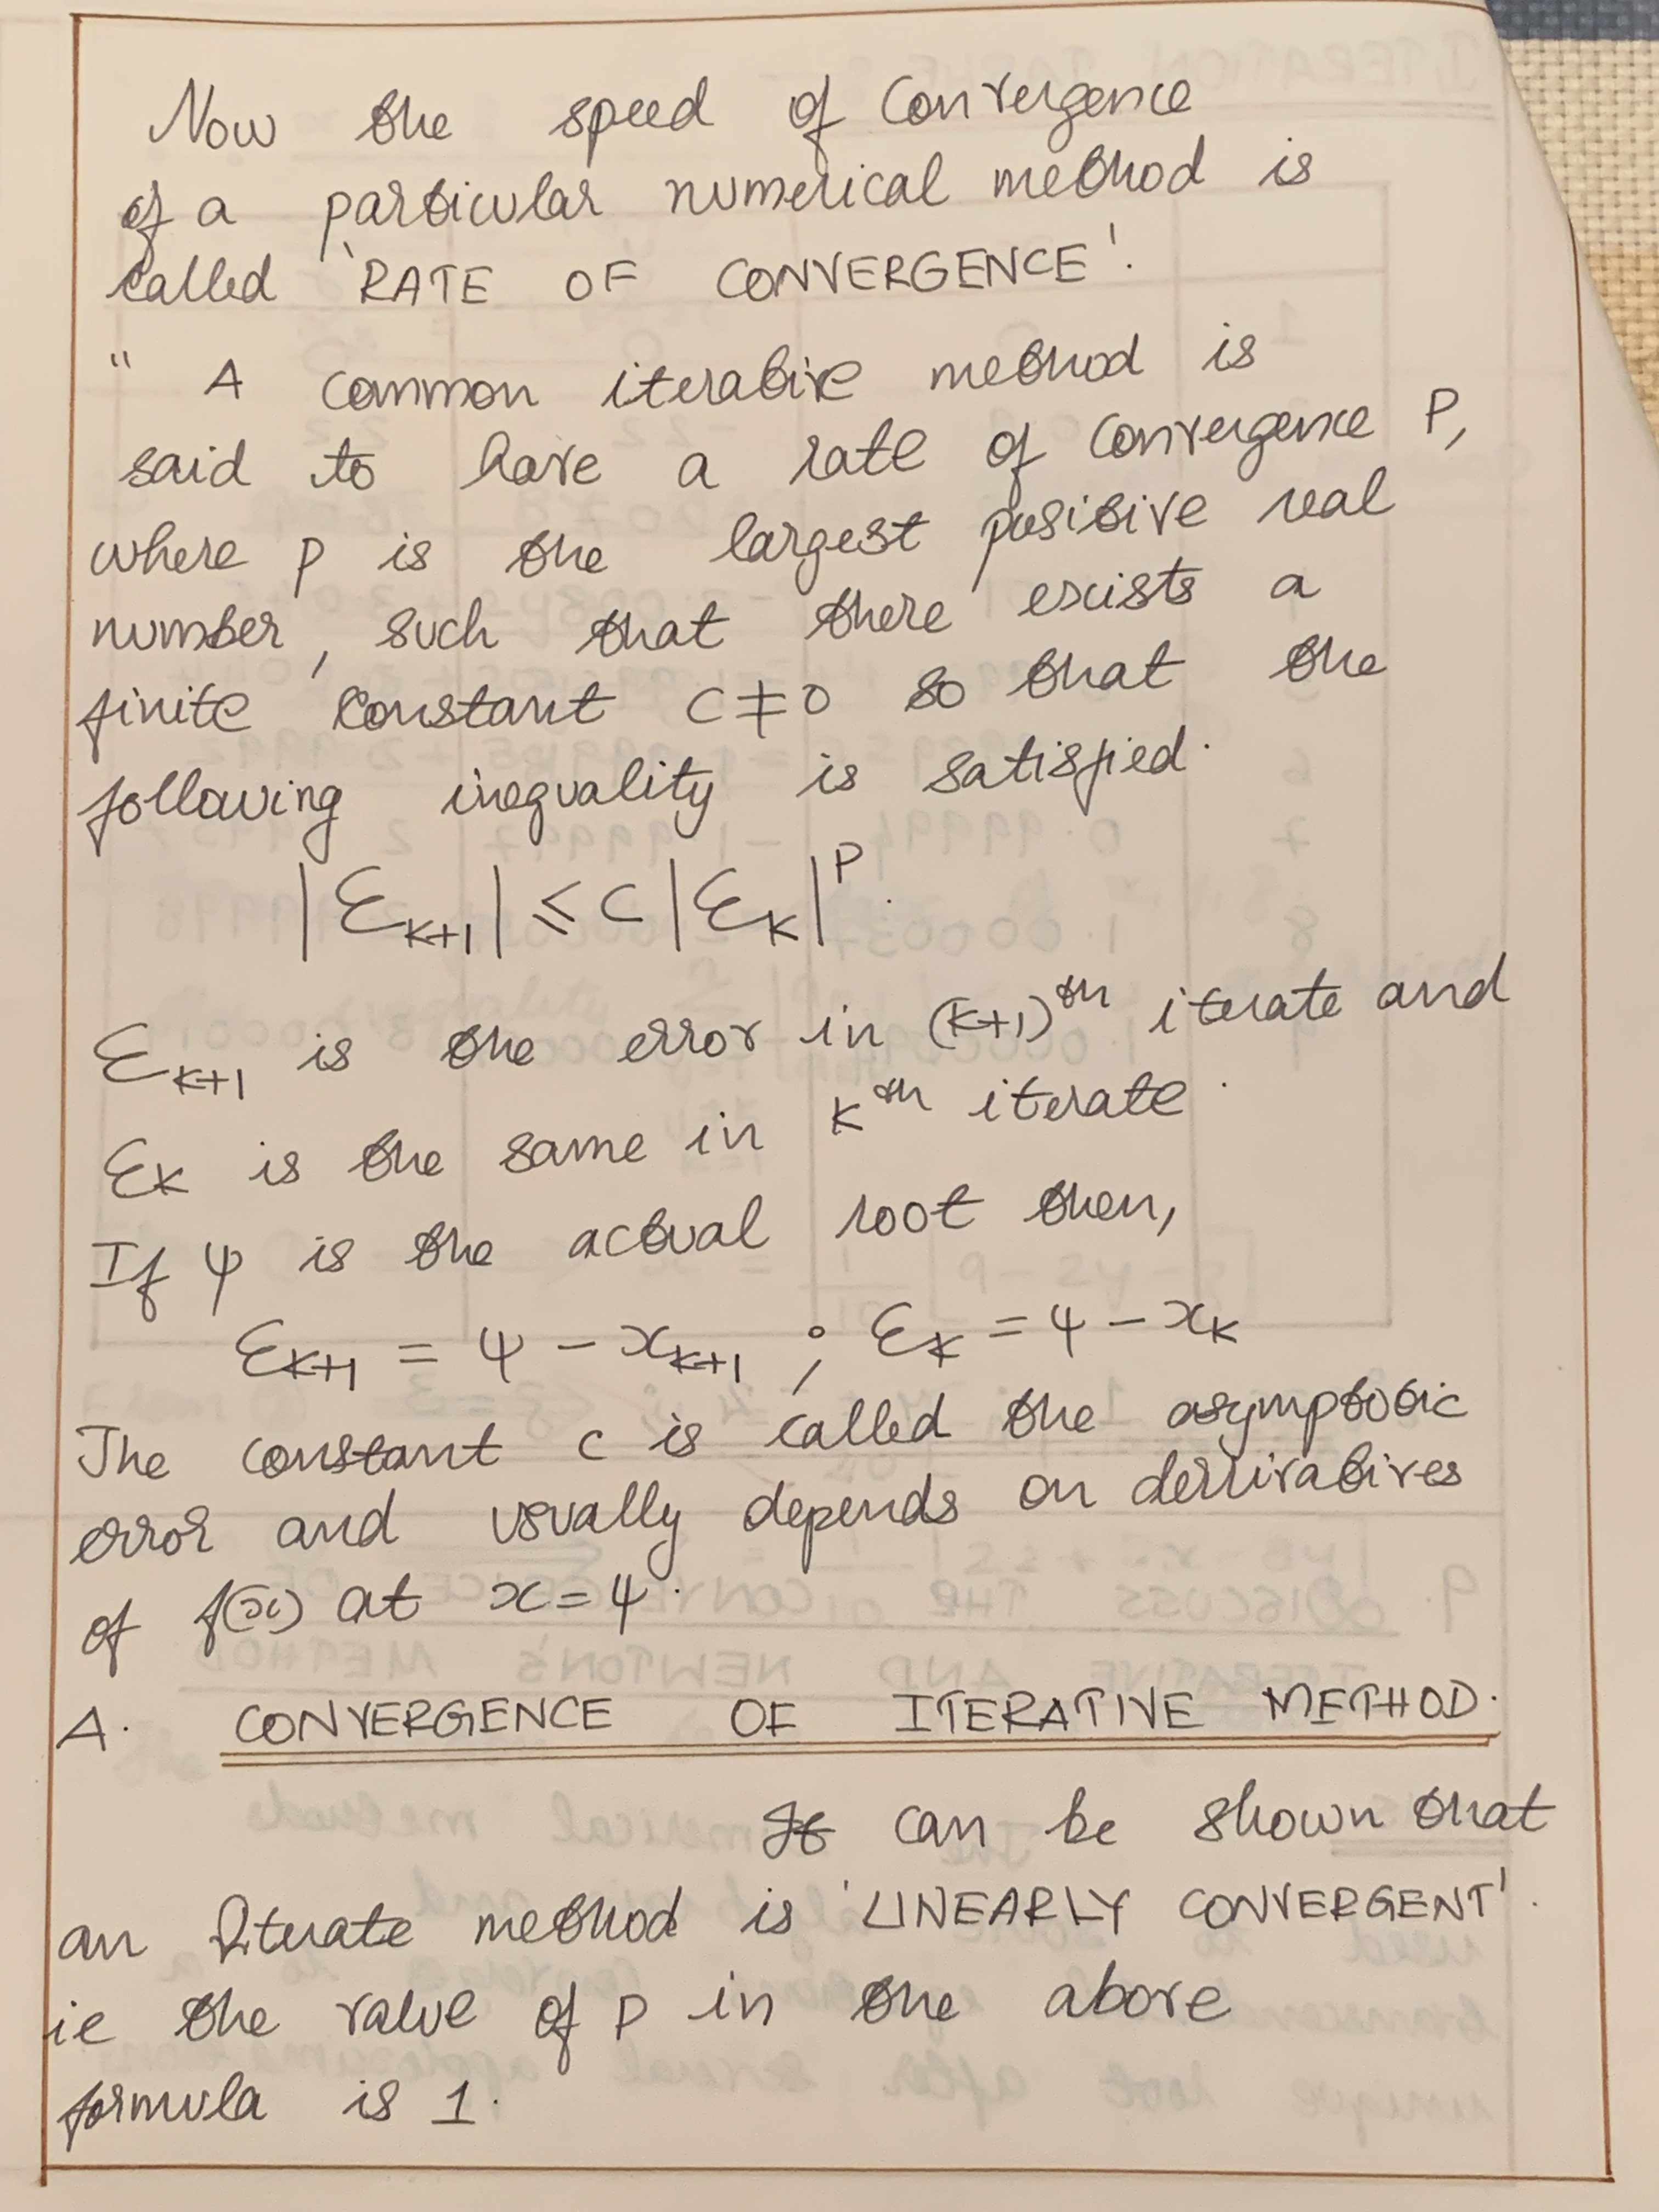 Now the speed of Convergence
of a particular numerical method is
called 'RATE OF CONVERGENCE'.
" A common iterative method is
said to have a rate of convergence P,
where p is the largest positive real
number, such that there exists a
finite constant c≠0 so that the
following inequality is satisfied.
|Ɛₖ₊₁| ⩽ c |Ɛₖ|ᴾ.
Ɛₖ₊₁ is the error in (k+1)ᵗʰ iterate and
Ɛₖ is the same in kᵗʰ iterate.
If ψ is the actual root then,
Ɛₖ₊₁ = ψ - xₖ₊₁ ; Ɛₖ = ψ - xₖ
The constant c is called the asymptotic
error and usually depends on derrivatives
of f(x) at x = ψ.
A. CONVERGENCE OF ITERATIVE METHOD.
It can be shown that
an Iterate method is 'LINEARLY CONVERGENT'.
ie the value of p in the above
formula is 1.